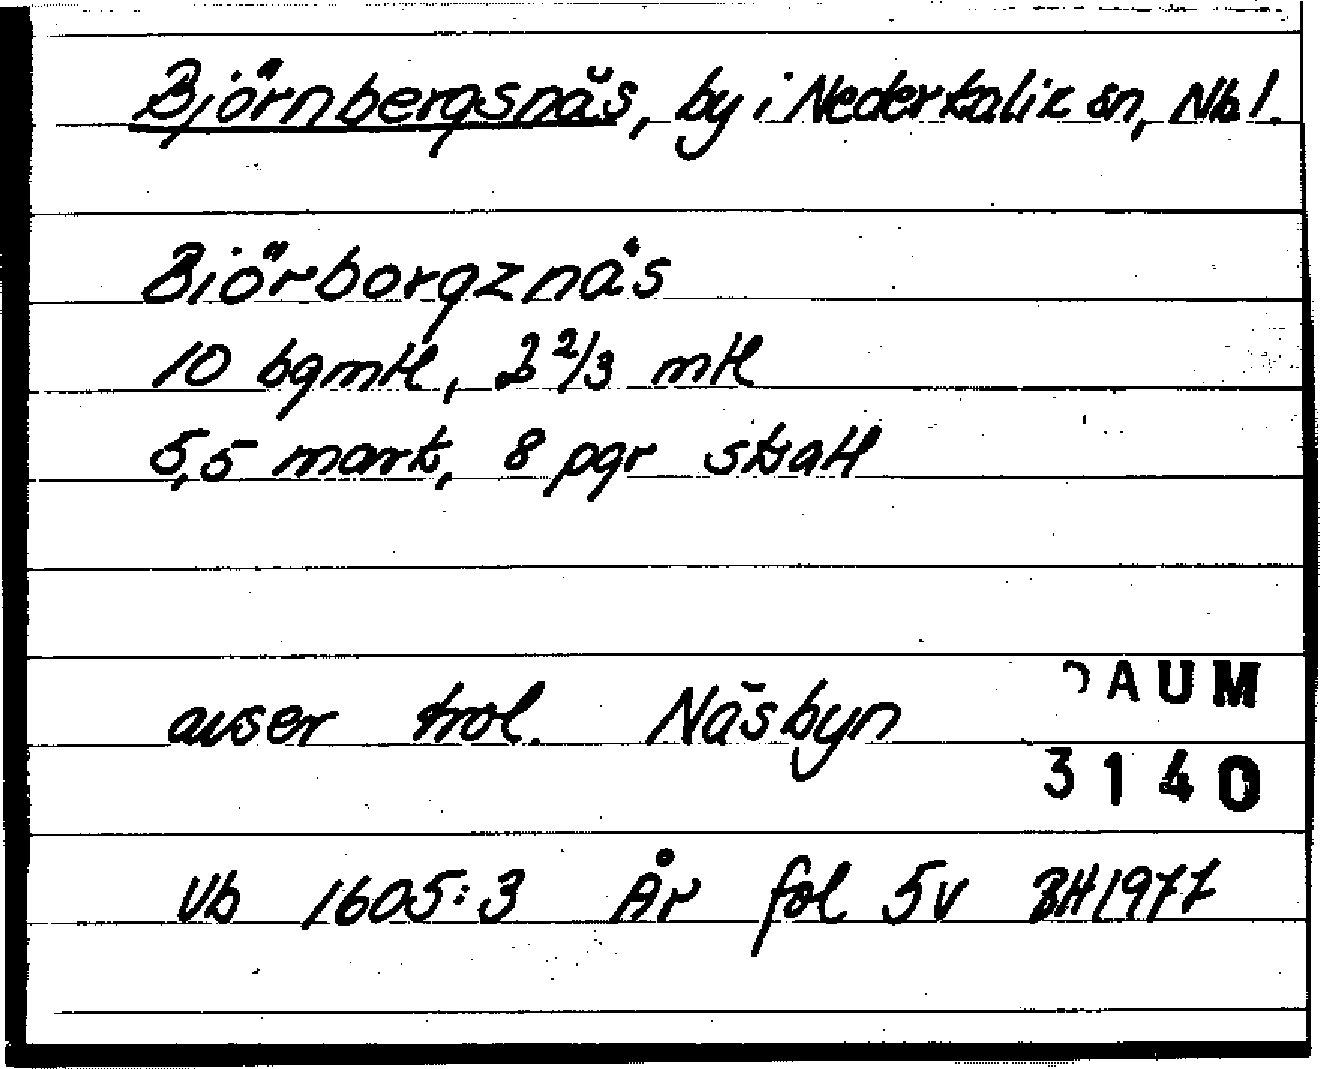 Björnbergsnäs, by i Nederkalix sn, Nb l.
Biörborgznäs
10 bgmtl, 2 2/3 mtl
5,5 mark, 8 pgr skatt
avser trol. Näsbyn
DAUM
3140
Vb 1605:3 År fol 5v BH1977